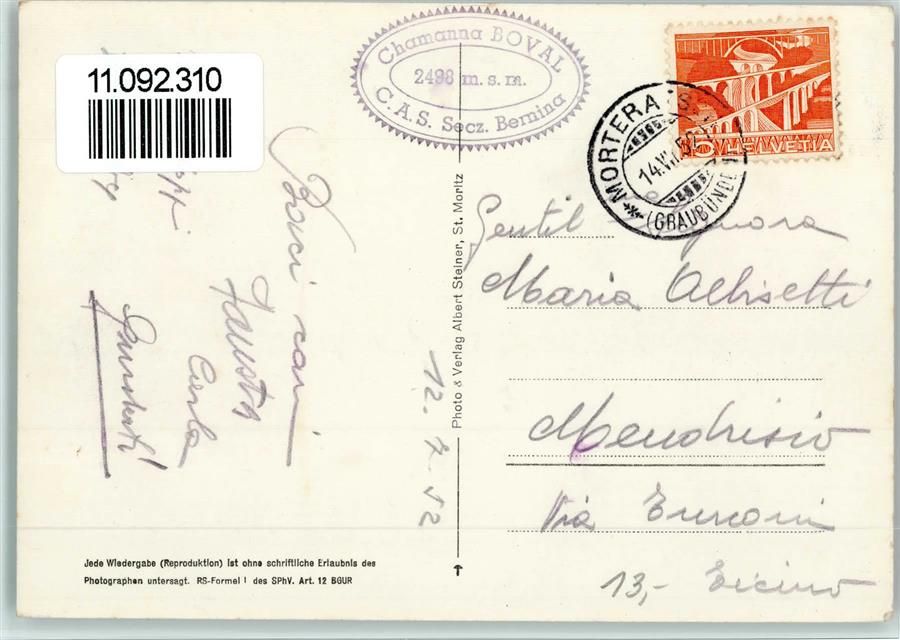 11.092.310
Chamanna BOVAL
2498 m. s. m.
C. A. S. Secz. Bernina
MORTERA
14.VII.52
(GRAUBÜNDEN)
5 HELVETIA
Baci cari
Fausta
Carla
12.7.52
Photo & Verlag Albert Steiner, St. Moritz
Gentil Signora
Maria Albisetti
Mendrisio
Via
13,- Ticino
Jede Wiedergabe (Reproduktion) ist ohne schriftliche Erlaubnis des
Photographen untersagt. RS-Formel I des SPhV. Art. 12 BGUR